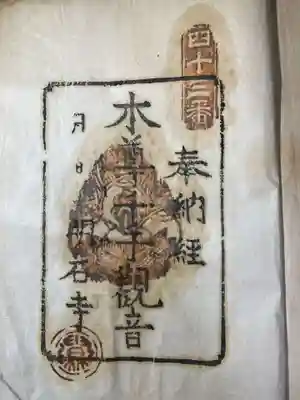 四十三番
奉納経
本尊千手觀音
月 日
明石寺